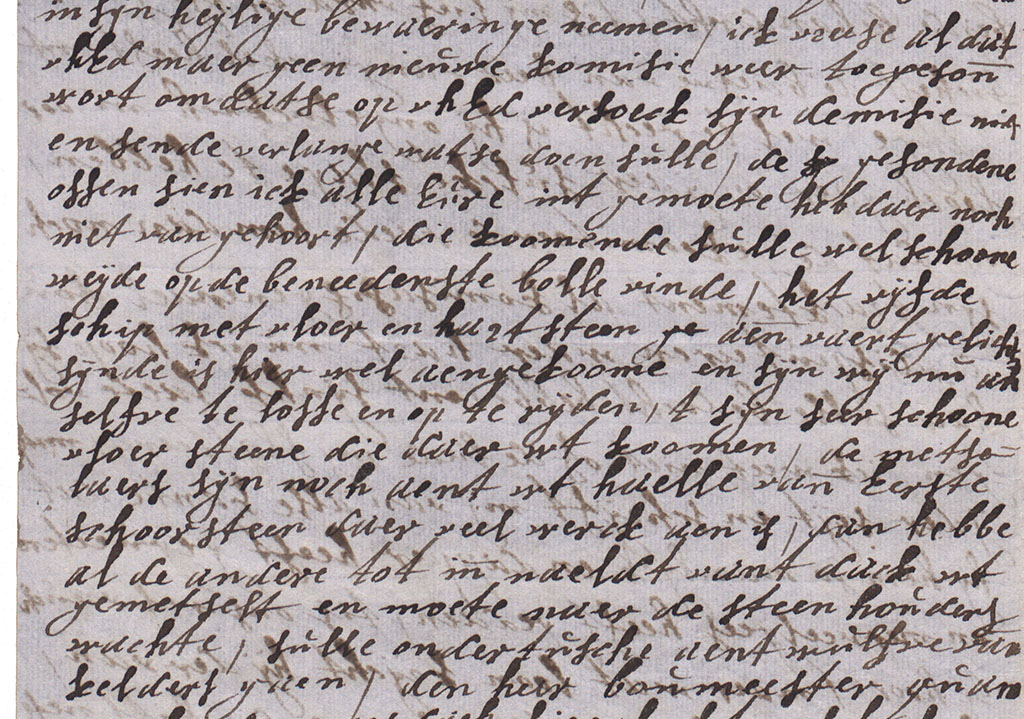 in sijn heijlige bewaeringe neemen, ick vreese al dat
vhEd maer geen nieuwe komisie weer toegeson
wort omdatse op vhEd versoeck sijn demisie
en sende verlange watse doen sulle, de gesondene
ossen sien ick alle Eure int gemoete heb daer noch
niet van gehoort, die koomende sulle wel schoone
weijde op de beneedenste bolle vinde, het vijfde
schip met vloer en hartsteen ge aen vaert gelicht
sijnde is hier wel aengekoome en sijn wij nu an
selfve te losse en op te rijden, t sijn seer schoone
vloer steene die daer wt koomen, de metse
laers sijn noch aent wt haelle van Eerste
schoorsteen daer veel werck aen is, dan hebbe
al de andere tot in naeldt vant dack wt
gemetselt en moete naer de steen houders
wachte, sulle ondertusche aent wulfve van
kelders gaen, den heer boumeester quam